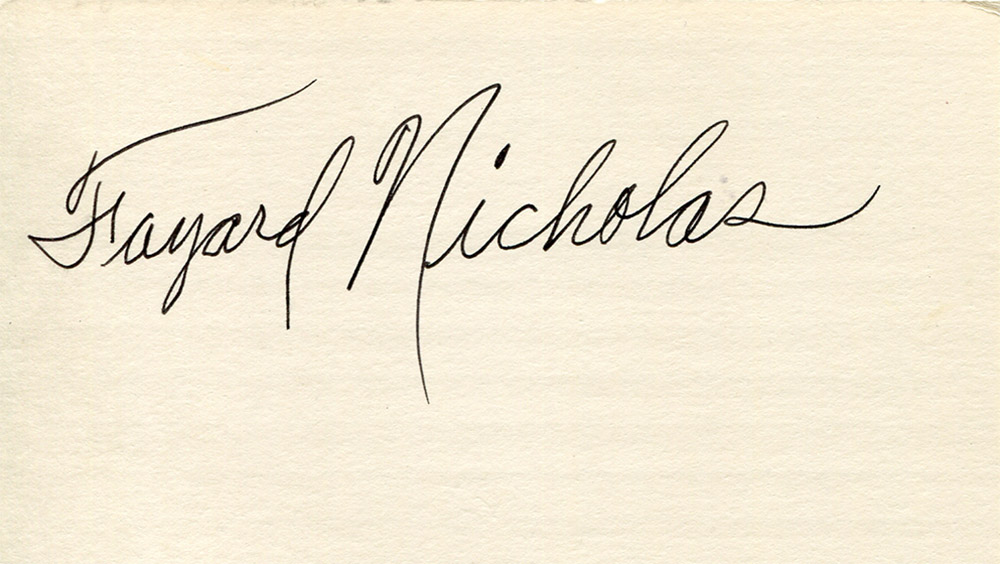 Fayard Nicholas